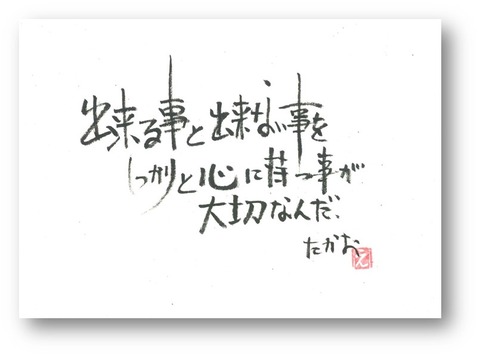 出来る事と出来ない事を
しっかりと心に持つ事が
大切なんだ、
たかお